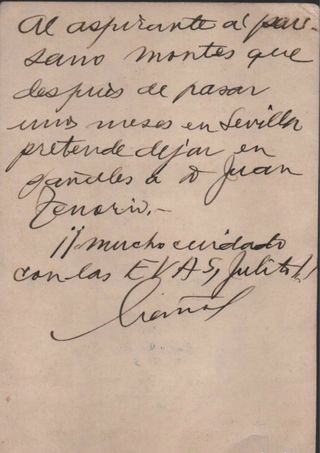 Al aspirante a pai-
sano montes que
después de pasar
unos meses en Sevilla
pretende dejar en
pañales a D Juan
Tenorio.-
¡¡mucho cuidado
con las EVAS, Julito!!